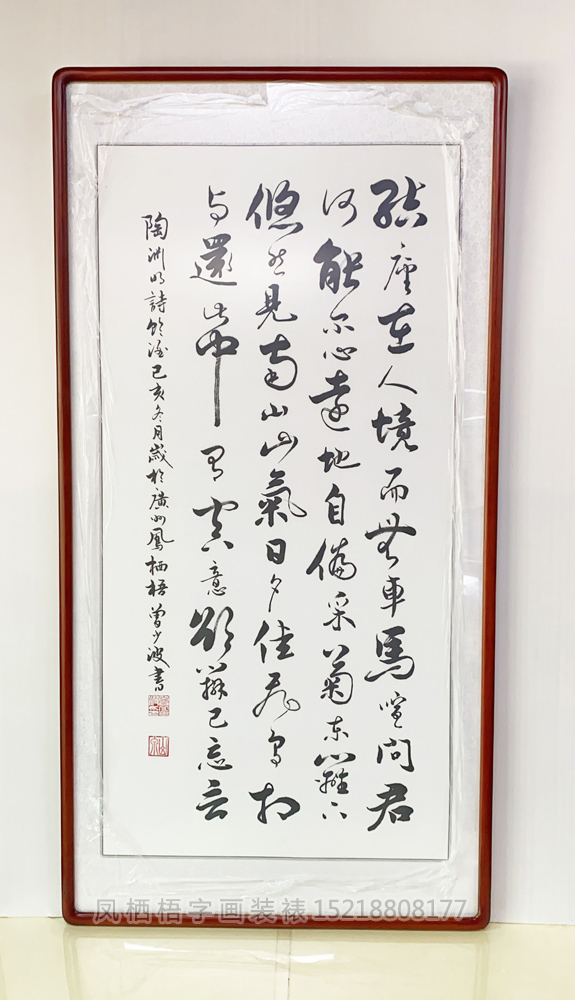 結廬在人境而無車馬喧問君
何能尔心遠地自偏采菊東籬下
悠然見南山山氣日夕佳飛鳥相
与還此中有真意欲辨已忘言
陶渊明詩飲酒己亥冬月歲於廣州鳳栖梧曾少波書
凤栖梧字画装裱15218808177